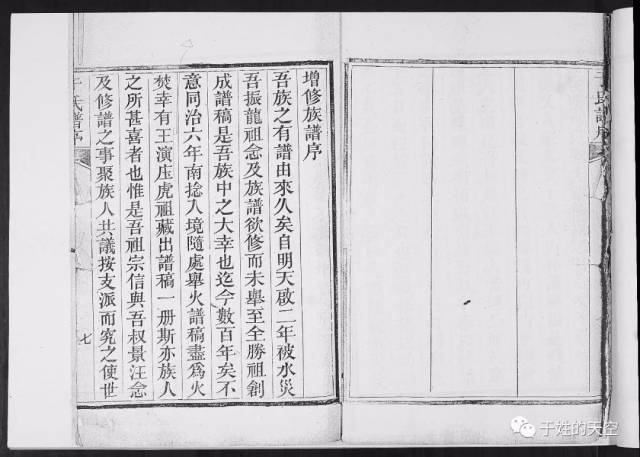 增修族譜序
吾族之有譜由來久矣自明天啟二年被水災
吾振龍祖念及族譜欲修而未舉至全勝祖創
成譜稿是吾族中之大幸也迄今數百年矣不
意同治六年南捻入境隨處舉火譜稿盡為火
焚幸有王演庄虎祖藏出譜稿一冊斯亦族人
之所甚喜者也惟是吾祖宗信與吾叔景汪念
及修譜之事聚族人共議按支派而究之使世
于氏譜序
七
氏譜序
于姓的天空